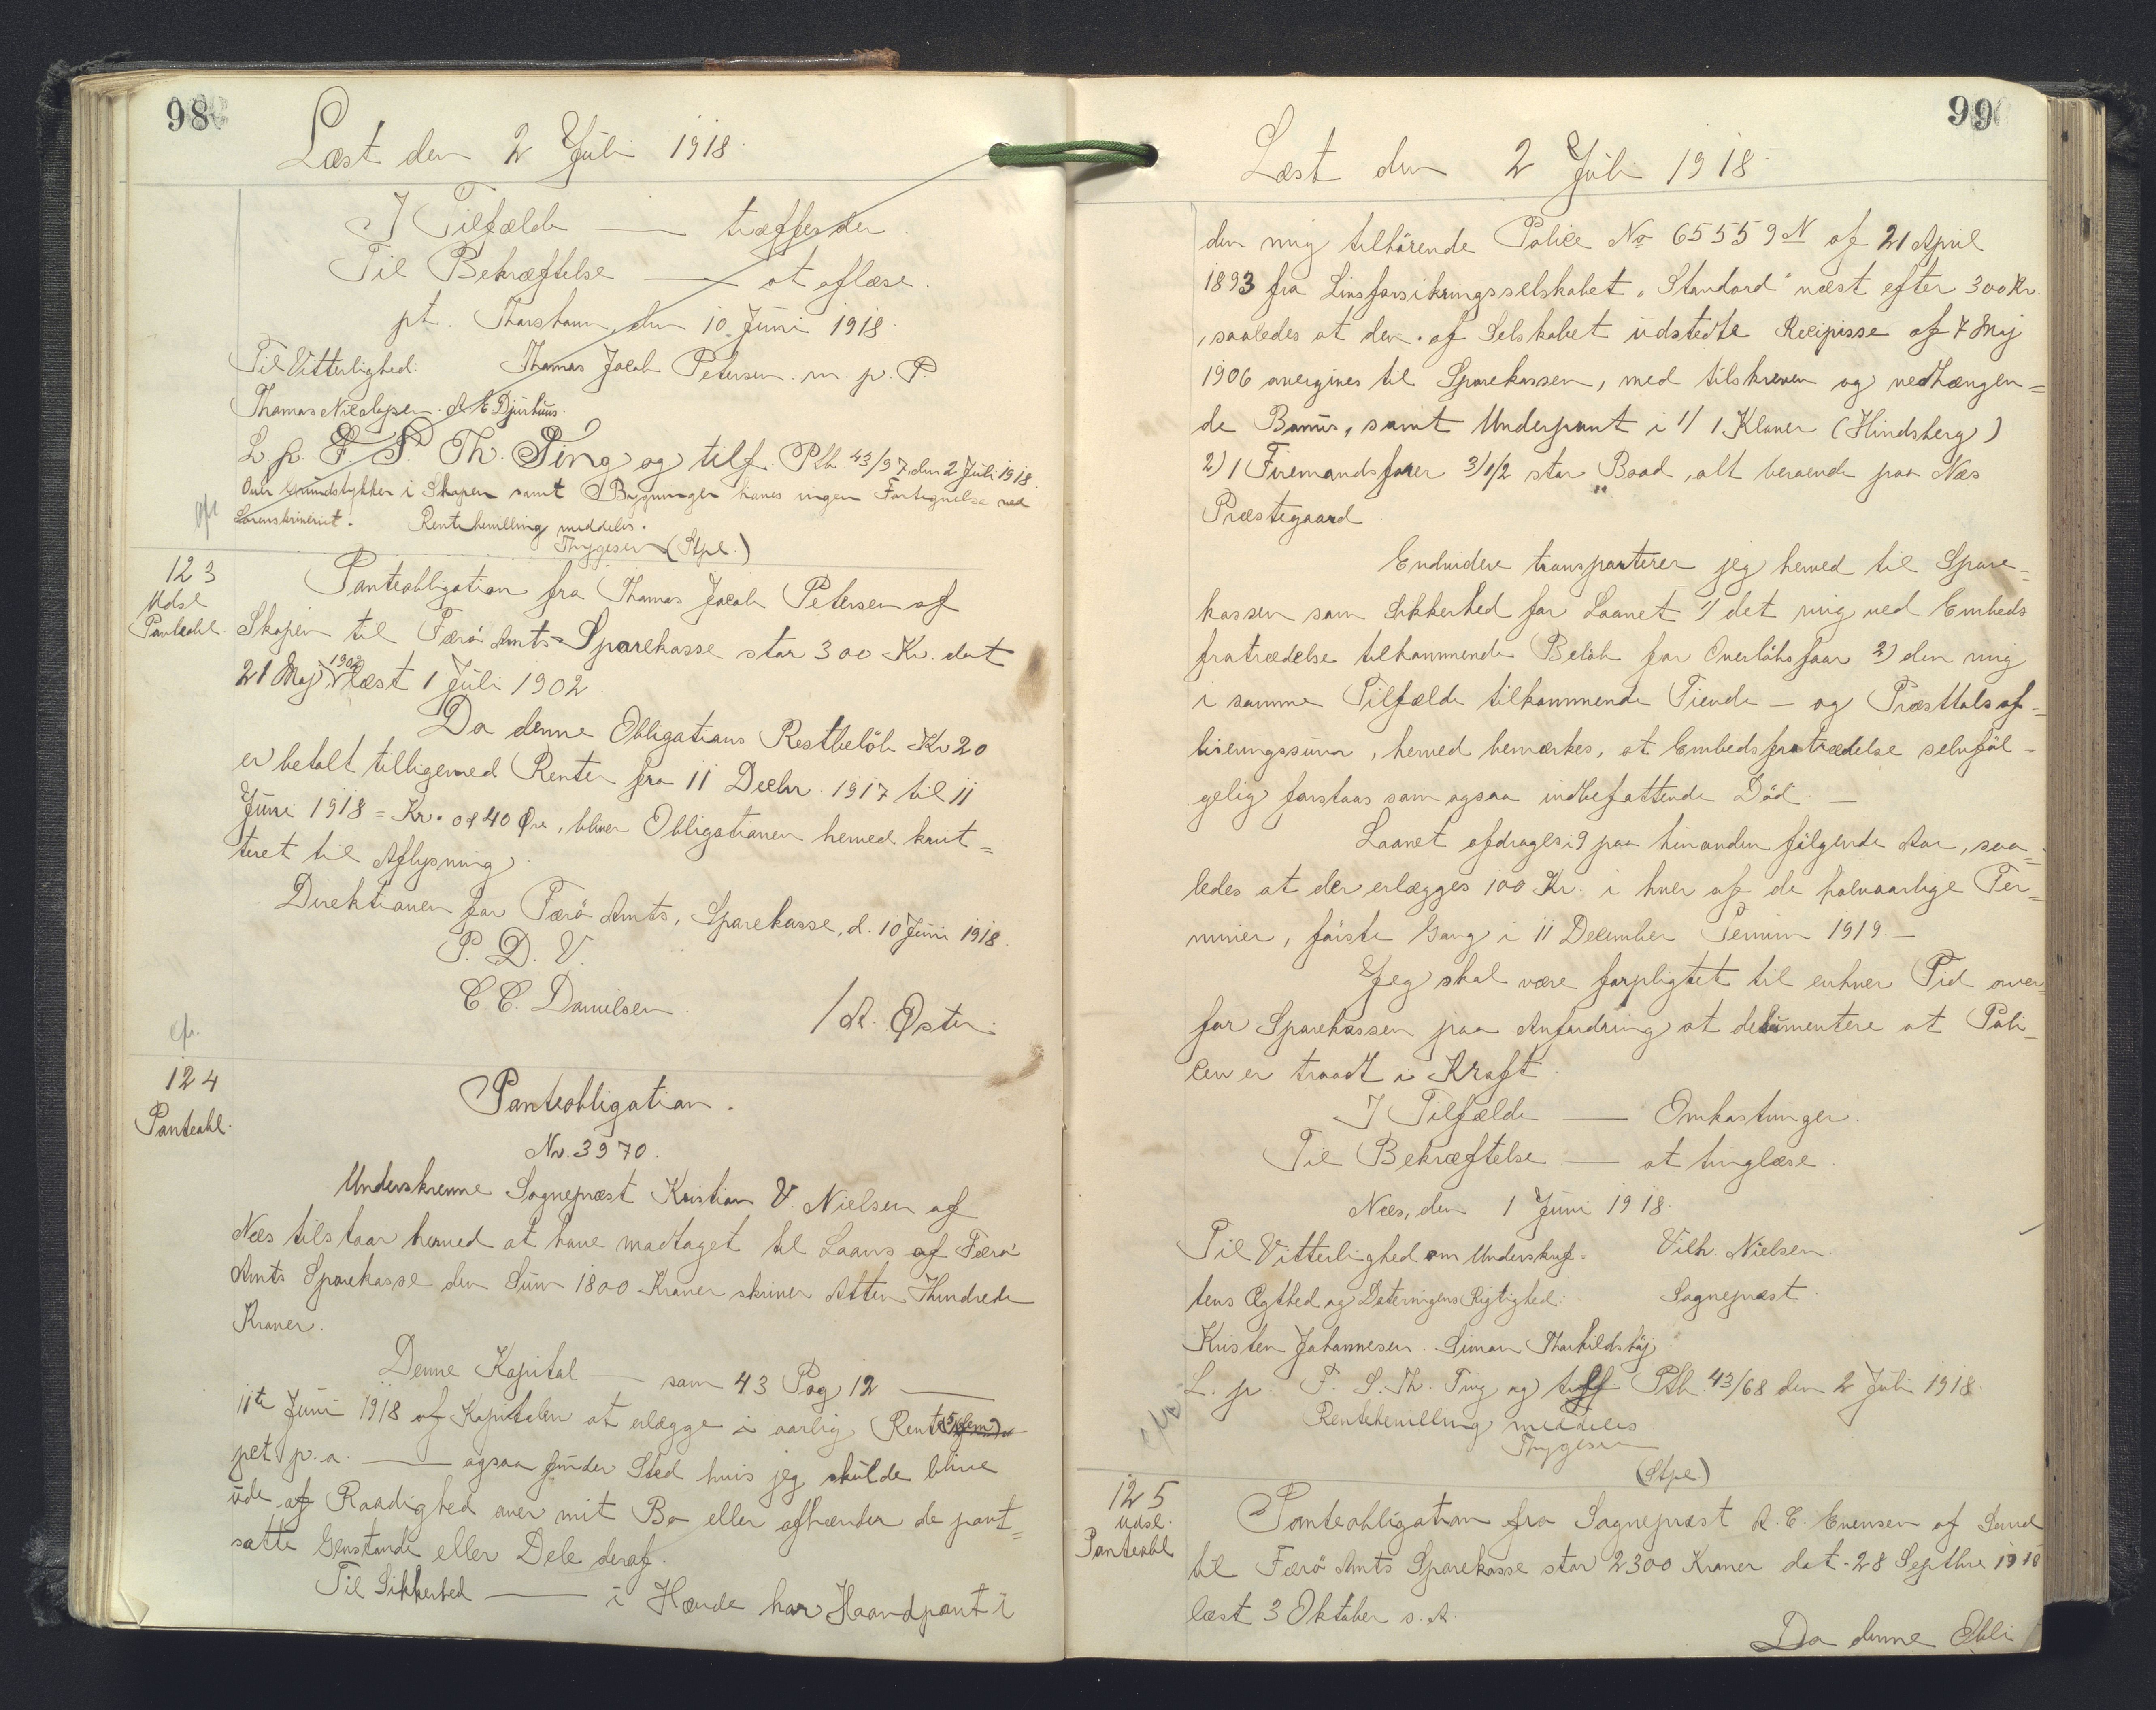 98
Læst den 2 Juli 1918.
I Tilfælde — træffer der
Til Bekræftelse — at aflæse.
pt. Thorshavn, den 10 Juni 1918.
Til Vitterlighed: Thomas Jacob Petersen. m. p. P.
Thomas Nicolajsen. A E Djurhuus.
L. p. F. S. Th. Ting og tilf. Ptb. 43/97, den 2 Juli 1918.
Over Grundstykker i Skopen samt Bygninger haves ingen Fortegnelse ved
Sorenskriveriet. Rentebevilling meddeles.
Thygesen (Stpl.)
123
Udsl
Panteobl.
Panteobligation fra Thomas Jacob Petersen af
Skopen til Færö Amts Sparekasse stor 300 Kr. dat
21 Maj 1902 læst 1 Juli 1902.
Da denne Obligations Restbelöb Kr 20
er betalt tilligemed Renten fra 11 Decbr. 1917 til 11
Juni 1918 = Kr. 0 og 40 Øre, bliver Obligationen herved kvit=
teret til Aflysning.
Direktionen for Færö Amts, Sparekasse, d. 10 Juni 1918.
P. D. V.
C. C. Danielsen. / A. Øster.
124
Panteobl.
Panteobligation.
No. 3970.
Underskrevne Sognepræst Kristian V. Nielsen af
Næs tilstaar herved at have modtaget til Laans af Færö
Amts Sparekasse den Sum 1800 Kroner skriver Atten Hundrede
Kroner.
Denne Kapital — som 43 Pag 12 —
11te Juni 1918 af Kapitalen at erlægge i aarlig Rente
pct p. a. — ogsaa finder Sted hvis jeg skulde blive
ude af Raadighed over mit Bo eller afhænder de pant=
satte Genstande eller Dele deraf.
Til Sikkerhed — i Hænde har Haandpant i
99
Læst den 2 Juli 1918.
den mig tilhörende Police No 65559 N af 21 April
1893 fra Livsforsikringsselskabet „Standard" næst efter 300 Kr.
, saaledes at den af Selskabet udstedte Recipisse af 7 Maj
1906 overgives til Sparekassen, med tilskreven og vedhængen=
de Bonus, samt Underpant i 1) 1 Klaver (Hindsberg)
2) 1 Firemandsfarer 3) 1/2 stor Baad, alt beroende paa Næs
Præstegaard
Endvidere transporterer jeg herved til Spare=
kassen som Sikkerhed for Laanet 1) det mig ved Embeds
fratrædelse tilkommende Beløb for Overlöbsfaar 2) den mig
i samme Tilfælde tilkommende Tiende – og Præsttolsaf=
lösningssum, herved bemærkes, at Embedsfratrædelse selvföl=
gelig forstaas som ogsaa indbefattende Död. —
Laanet afdrages i 9 paa hinanden fölgende Aar, saa=
ledes at der erlægges 100 Kr. i hver af de halvaarlige Ter=
miner, förste Gang i 11 December Termin 1919. —
Jeg skal være forpligtet til enhver Tid over=
for Sparekassen paa Anfordring at dokumentere at Poli=
cen er traadt i Kraft.
I Tilfælde — Omkostninger.
Til Bekræftelse — at tinglæse.
Næs, den 1 Juni 1918.
Til Vitterlighed om Underskrif= Vilh. Nielsen.
tens Ægthed og Dateringens Rigtighed: Sognepræst.
Kristen Johannesen. Simon Thorkildshöj.
L. p. F. S. Th. Ting og tilf Ptb. 43/68 den 2 Juli 1918.
Rentebevilling meddeles
Thygesen
(Stpl.)
125
Udsl.
Panteobl
Panteobligation fra Sognepræst A. C. Evensen af Sand
til Færö Amts Sparekasse stor 2300 Kroner dat. 28 Septbr. 1910
læst 3 Oktober s. A.
Da denne Obli